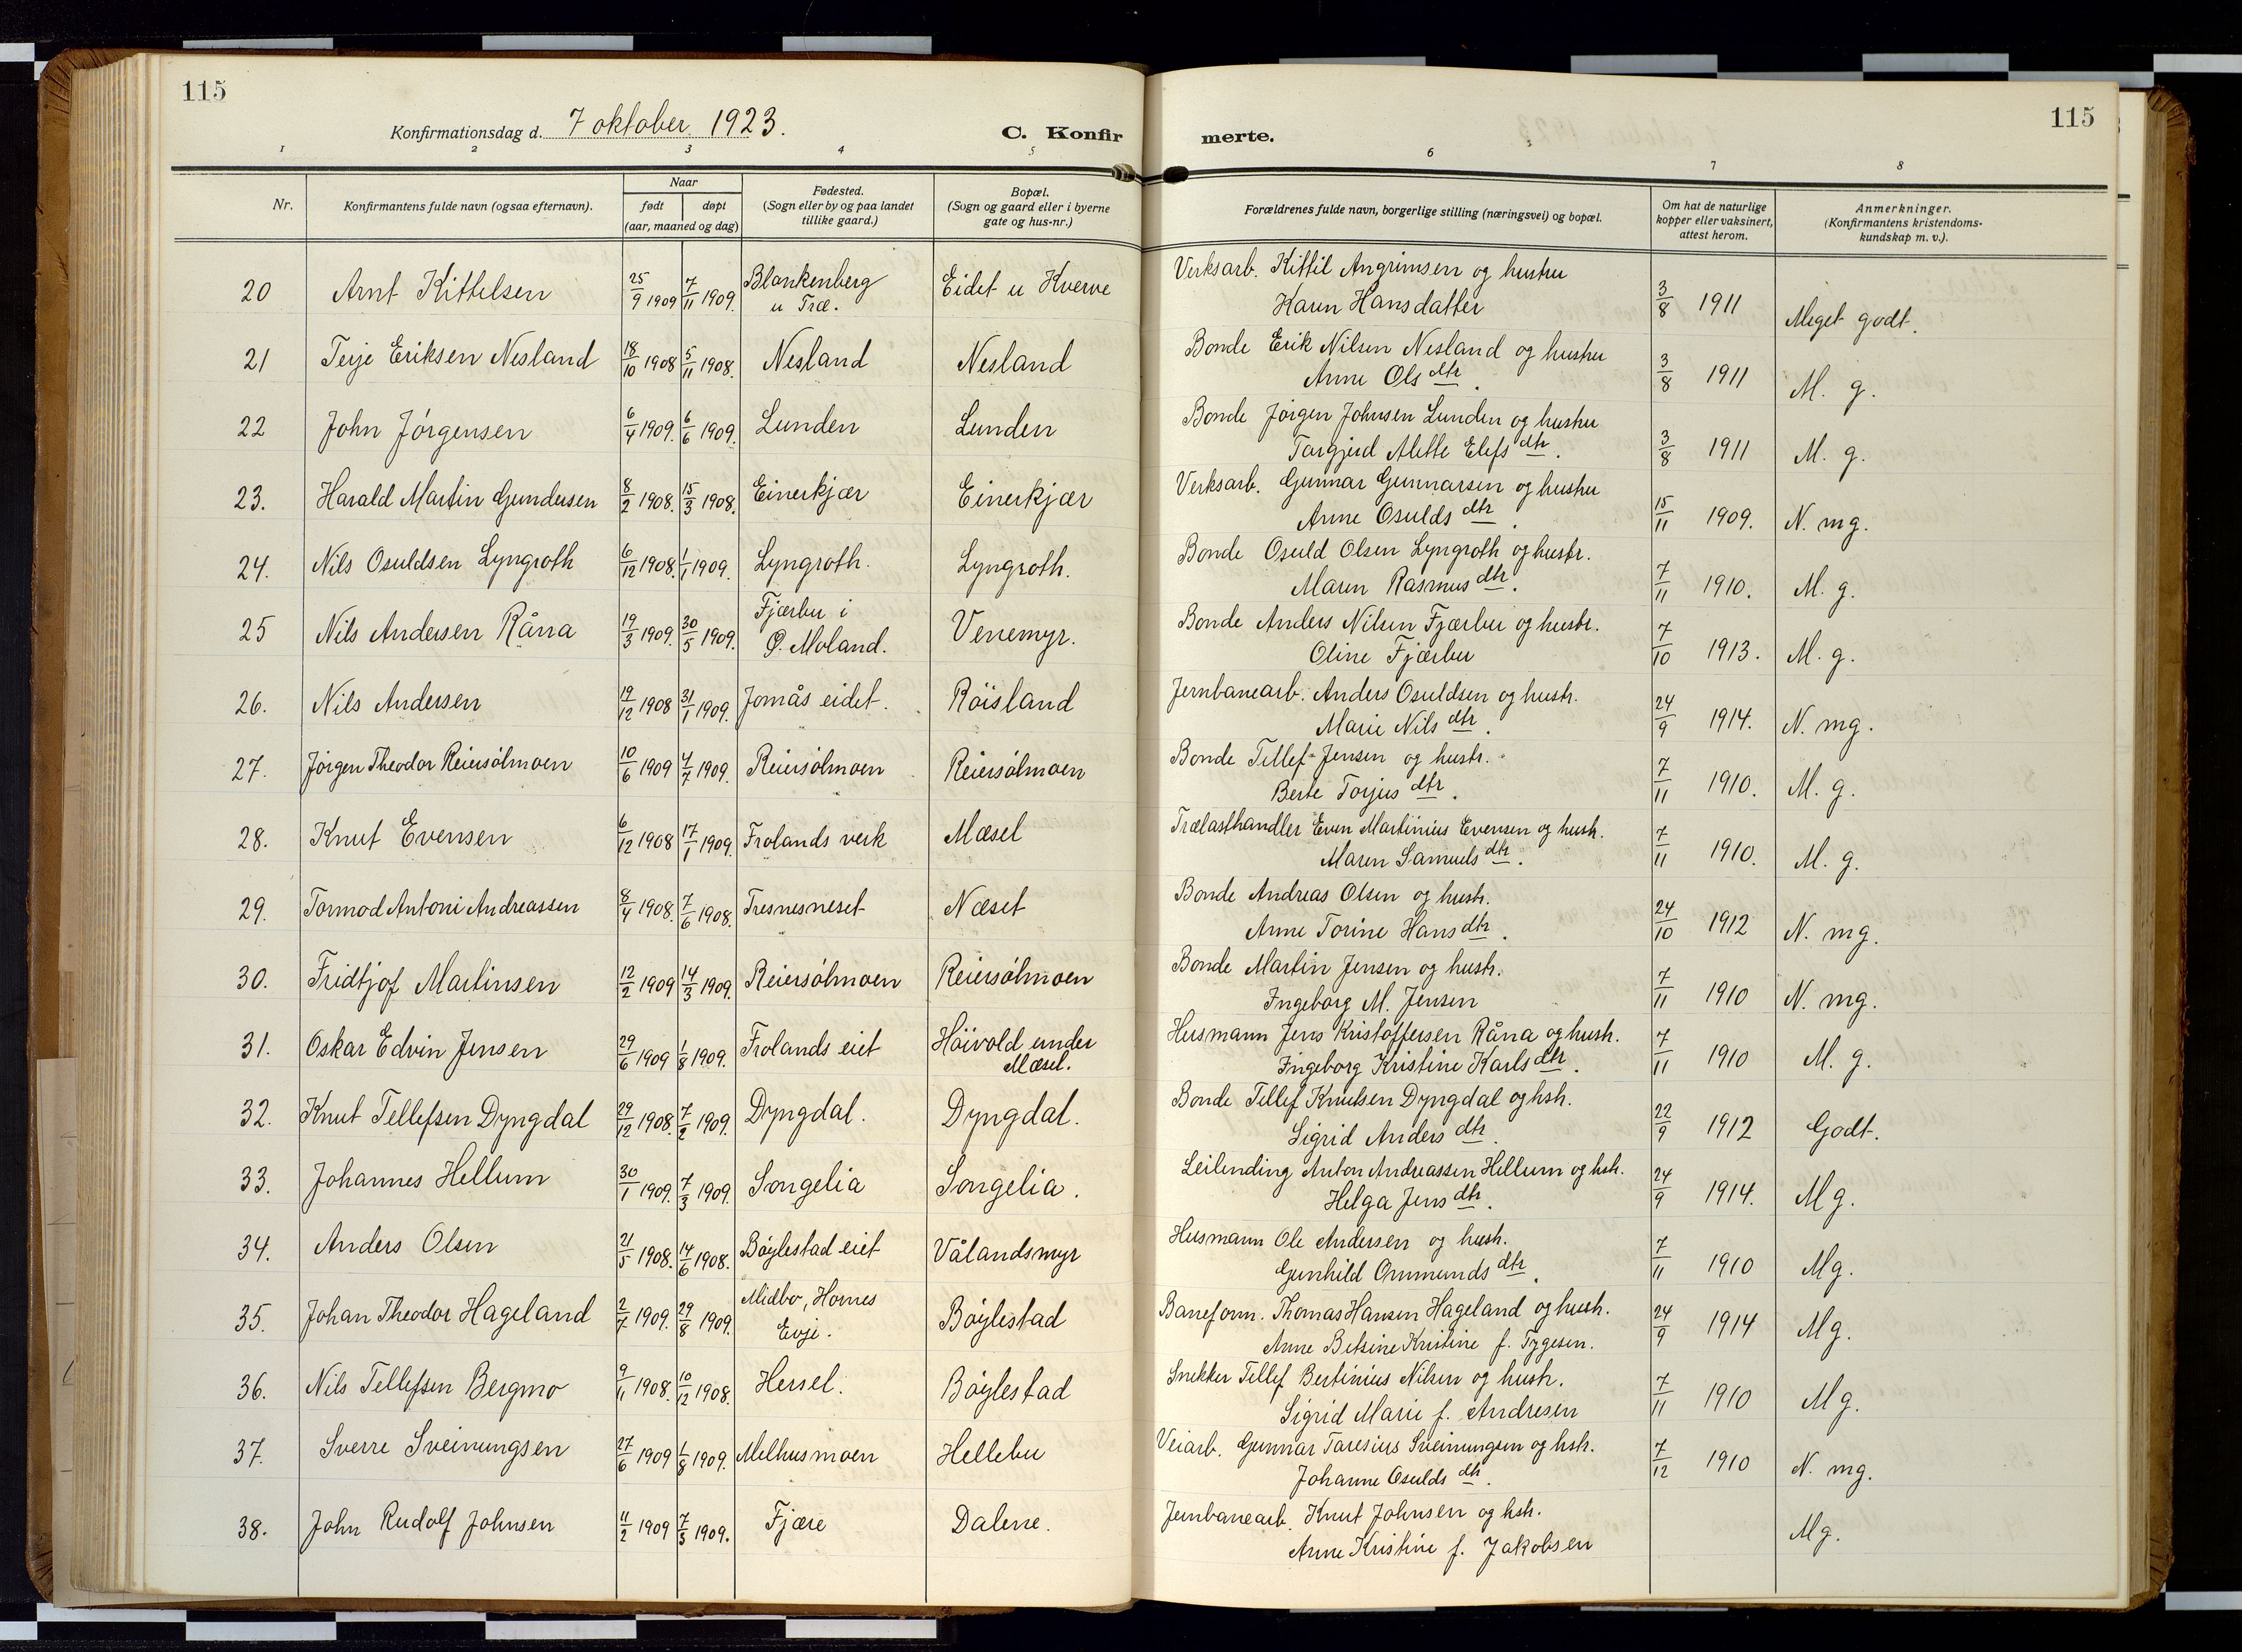 115
115
Konfirmationsdag d. 7 oktober 1923.
C. Konfir
merte.
1 2 3 4 5 6 7 8
Nr.
Konfirmantens fulde navn (ogsaa efternavn).
Naar
født døpt
(aar, maaned og dag)
Fødested.
(Sogn eller by og paa landet
tillike gaard.)
Bopæl.
(Sogn og gaard eller i byerne
gate og hus-nr.)
Forældrenes fulde navn, borgerlige stilling (næringsvei) og bopæl.
Om hat de naturlige
kopper eller vaksinert,
attest herom.
Anmerkninger.
(Konfirmantens kristendoms-
kundskap m. v.).
20 Arnt Kittelsen 25/9 1909 7/11 1909. Blankenberg Eidet u Kverve Verksarb. Kittil Angrimsen og hustru
u Træ. Karen Hansdatter 3/8 1911 Meget godt.
21 Terje Eriksen Nesland 18/10 1908 5/11 1908. Nesland Nesland Bonde Erik Nilsen Nesland og hustru
Anne Ols dtr. 3/8 1911 M. g.
22 John Jörgensen 6/4 1909. 6/6 1909. Lunden Lunden Bonde Jörgen Johnsen Lunden og hustru
Targjerd Mette Elefs dtr. 3/8 1911 M. g.
23. Harald Martin Gundersen 8/2 1908. 15/3 1908. Einerkjær Einerkjær Verksarb. Gunnar Gunnarsen og hustru
Anne Osulds dtr. 15/11 1909. N. mg.
24. Nils Osuldsen Lyngroth 6/12 1908. 1/1 1909. Lyngroth. Lyngroth. Bonde Osuld Olsen Lyngroth og hustr.
Maren Rasmus dtr. 7/11 1910. M. g.
25 Nils Andersen Råna 19/3 1909. 30/5 1909. Fjærbu i Venemyr. Bonde Anders Nilsen Fjærbu og hustr.
Ø. Moland. Oline Fjærbu 7/10 1913. M. g.
26. Nils Andersen 19/12 1908 31/1 1909. Jomås eidet. Röisland Jernbanearb. Anders Osuldsen og hustr.
Marie Nils dtr. 24/9 1914. N. mg.
27. Jörgen Theodor Reiersölmoen 10/6 1909 4/7 1909. Reiersölmoen Reiersölmoen Bonde Tellef Jensen og hustr.
Berte Torjus dtr. 7/11 1910. M. g.
28. Knut Evensen 6/12 1908 17/1 1909. Frolands verk Mæsel Trælasthandler Even Martinius Evensen og hustr.
Maren Samuels dtr. 7/11 1910. M. g.
29. Tormod Antoni Andreassen 8/4 1908. 7/6 1908. Tresnesneset Næset Bonde Andreas Olsen og hustr.
Anne Torine Hans dtr. 24/10 1912 N. mg.
30. Fridtjof Martinsen 12/2 1909 14/3 1909. Reiersölmoen Reiersölmoen Bonde Martin Jensen og hustr.
Ingeborg M. Jensen 7/11 1910 N. mg.
31. Oskar Edvin Jensen 29/6 1909 1/8 1909. Frolands eiet Höivold under Husmann Jens Kristoffersen Råna og hustr.
Mæsel. Ingeborg Kristine Karls dtr. 7/11 1910 M. g.
32. Knut Tellefsen Dyngdal 29/12 1908. 7/2 1909. Dyngdal. Dyngdal. Bonde Tellef Knutsen Dyngdal og hstr.
Sigrid Anders dtr. 22/9 1912 Godt.
33. Johannes Hellum 30/1 1909. 7/3 1909. Songelia Songelia. Leilending Anton Andreassen Hellum og hstr.
Helga Jens dtr. 24/9 1914. Mg.
34. Anders Olsen 21/5 1908. 14/6 1908. Böylestad eiet Vålandsmyr Husmann Ole Andersen og hustr.
Gunhild Ommunds dtr. 7/11 1910 Mg.
35. Johan Theodor Hageland 2/7 1909. 29/8 1909. Midbo, Hornes Böylestad Baneform. Thomas Hansen Hageland og hustr.
Evje. Anne Betsine Kristine f. Tygesen. 24/9 1914 Mg.
36. Nils Tellefsen Bergmo 9/11 1908. 10/12 1908. Hersel. Böylestad Snekker Tellef Bertinius Nilsen og hustr.
Sigrid Marie f. Andresen 7/11 1910 Mg.
37. Sverre Sveinungsen 27/6 1909 1/8 1909. Melhusmoen Hellebu Veiarb. Gunnar Taresius Sveinungsen og hstr.
Johanne Osulds dtr. 7/12 1910 N. mg.
38. John Rudolf Johnsen 11/2 1909 7/3 1909. Fjære Dalene. Jernbanearb. Knut Johnsen og hstr.
Anne Kristine f. Jakobsen Mg.